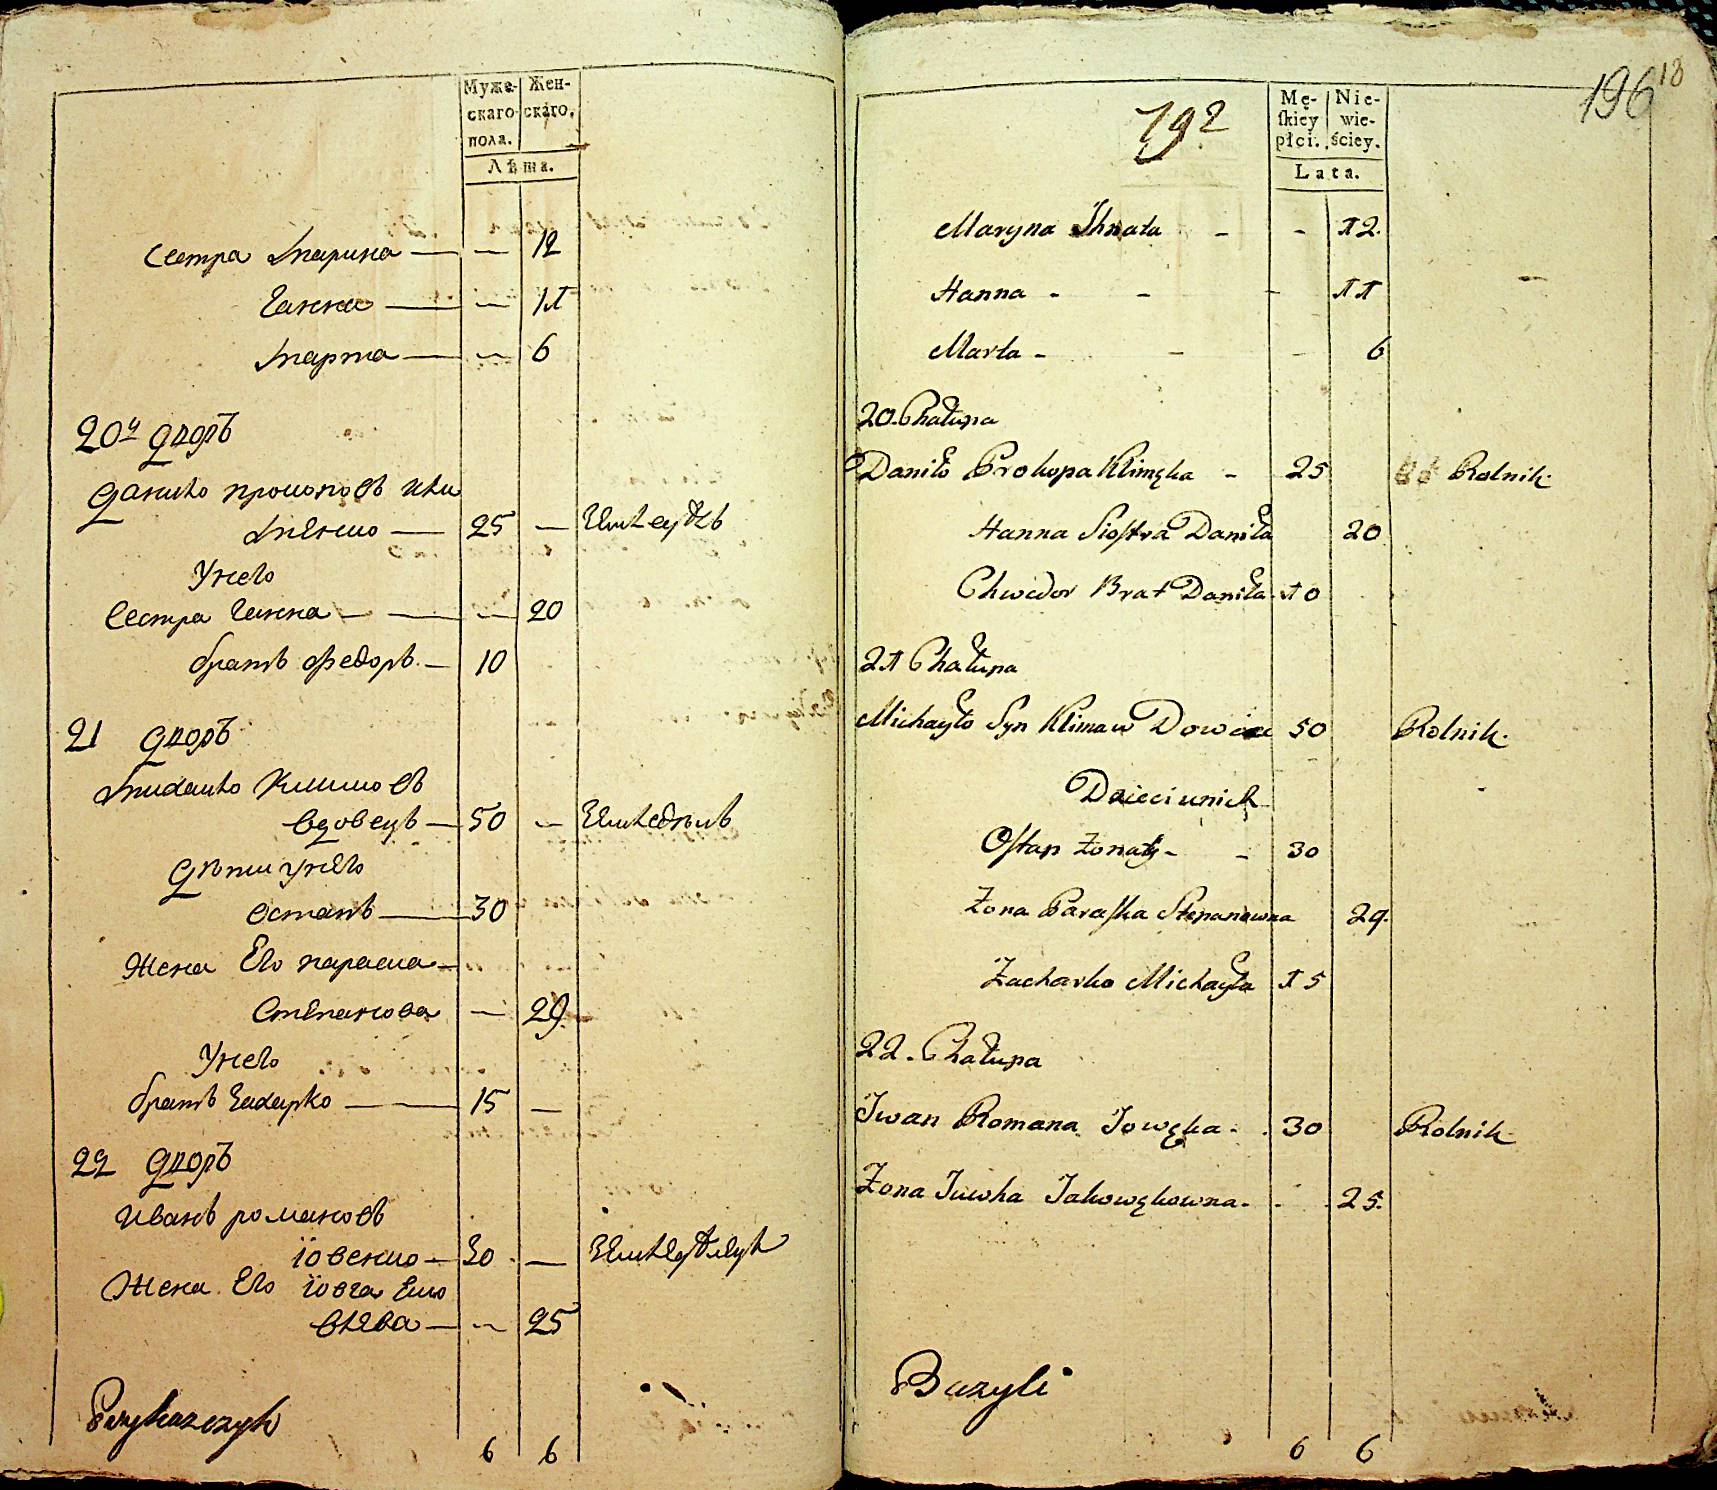 Муже-
скаго
пола.
Жен-
скаго,
Лѣта.
Сестра Марина — — 12
Ганна — — 11
Марта — — 6
20й дворъ
Данило Прокоповъ Кли
менко — 25 — Земледѣлъ
У него
Сестра Ганна — — — 20
братъ Федоръ — 10
21 дворъ
Михайло Климовъ
вдовецъ — 50 — Земледѣлъ
Дѣти у него
Остапъ — 30
Жена Его параска —
Степанова — 29
У него
братъ Захарко — 15 —
22 дворъ
Иванъ романовъ
іовенко — 30 — Земледѣлецъ
Жена Его іовга Яко
влева — — 25
Przykazczyk
6 6
192
196
18
Mę-
skiey
płci.
Nie-
wie-
ściey.
Lata.
Maryna Ihnata - - 12.
Hanna - - - 11
Marta - - - 6
20. Chałupa
Daniło Prokopa Klimęka - 25 Rolnik.
Hanna Siostra Daniła 20
Chwedor Brat Daniła 10
21 Chałupa
Michayło Syn Klimaw Dowiec 50 Rolnik.
Dzieci unich
Ostap żonaty - - 30
Żona Paraska Stepanowna 29.
Zacharko Michayła 15
22. Chałupa
Iwan Romana Iowęka - . 30 Rolnik
Żona Iuwha Iakowękowna - - - 25.
Bazyli
6 6